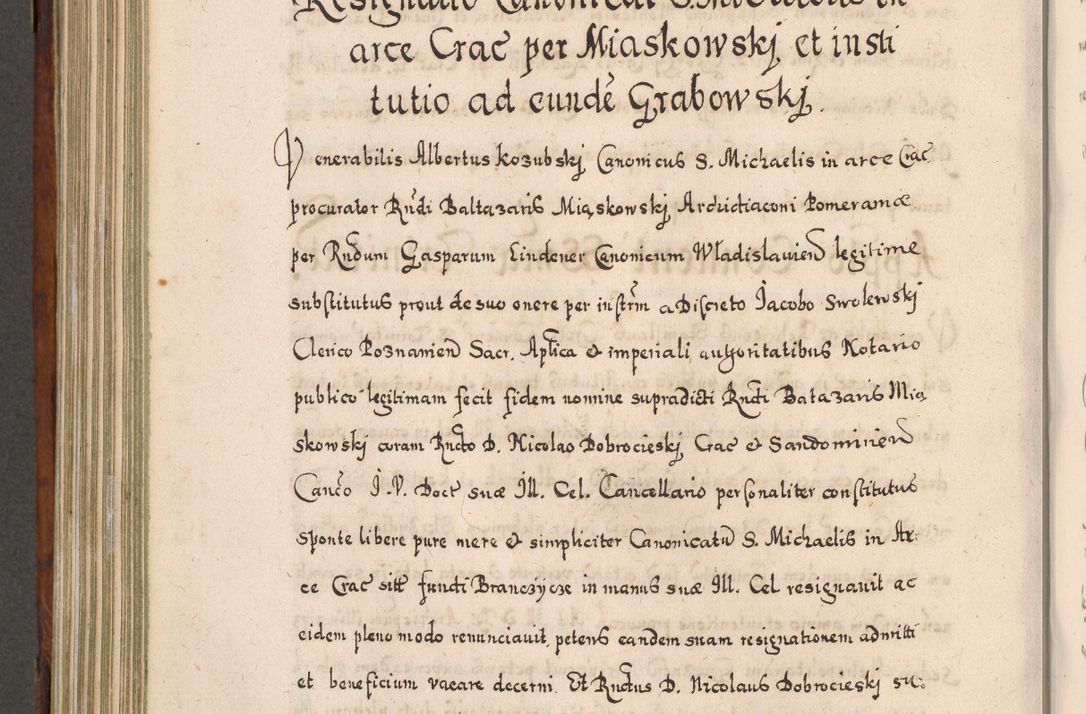 Resignatio Canonicat S. Michaelis in
arce Crac per Miaskowskj et insti
tutio ad eundē Grabowskj.
Venerabilis Albertus Kozubskj Canonicus S. Michaelis in arce Crac
procurator Rndi Baltazaris Miąskowskj Archidiaconi Pomeraniæ
per Rndum Gasparum Lindener Canonicum Wladislavien legitime
substitutus prout de suo onere per instrm a Discreto Jacobo Swolewskj
Clerico Poznanien Sacr. Aplica & imperiali authoritatibus Notario
publico legitimam fecit fidem nomine supradicti Rndi Batazaris Mią
skowskj coram Rndo D. Nicolao Dobrocieskj Crac & Sandomirien
Canco J. V. Doct suæ Ill. Cel. Cancellario personaliter constitutus
sponte libere pure mere & simpliciter Canonicatū S. Michaelis in Ar:
ce Crac sitt fundi Branczycze in manus suæ Ill. Cel resignavit ac
eidem pleno modo renunciavit, petens eandem suam resignationem admitti
et beneficium vacare decerni. Et Rndus D. Nicolaus Dobrocieskj su: